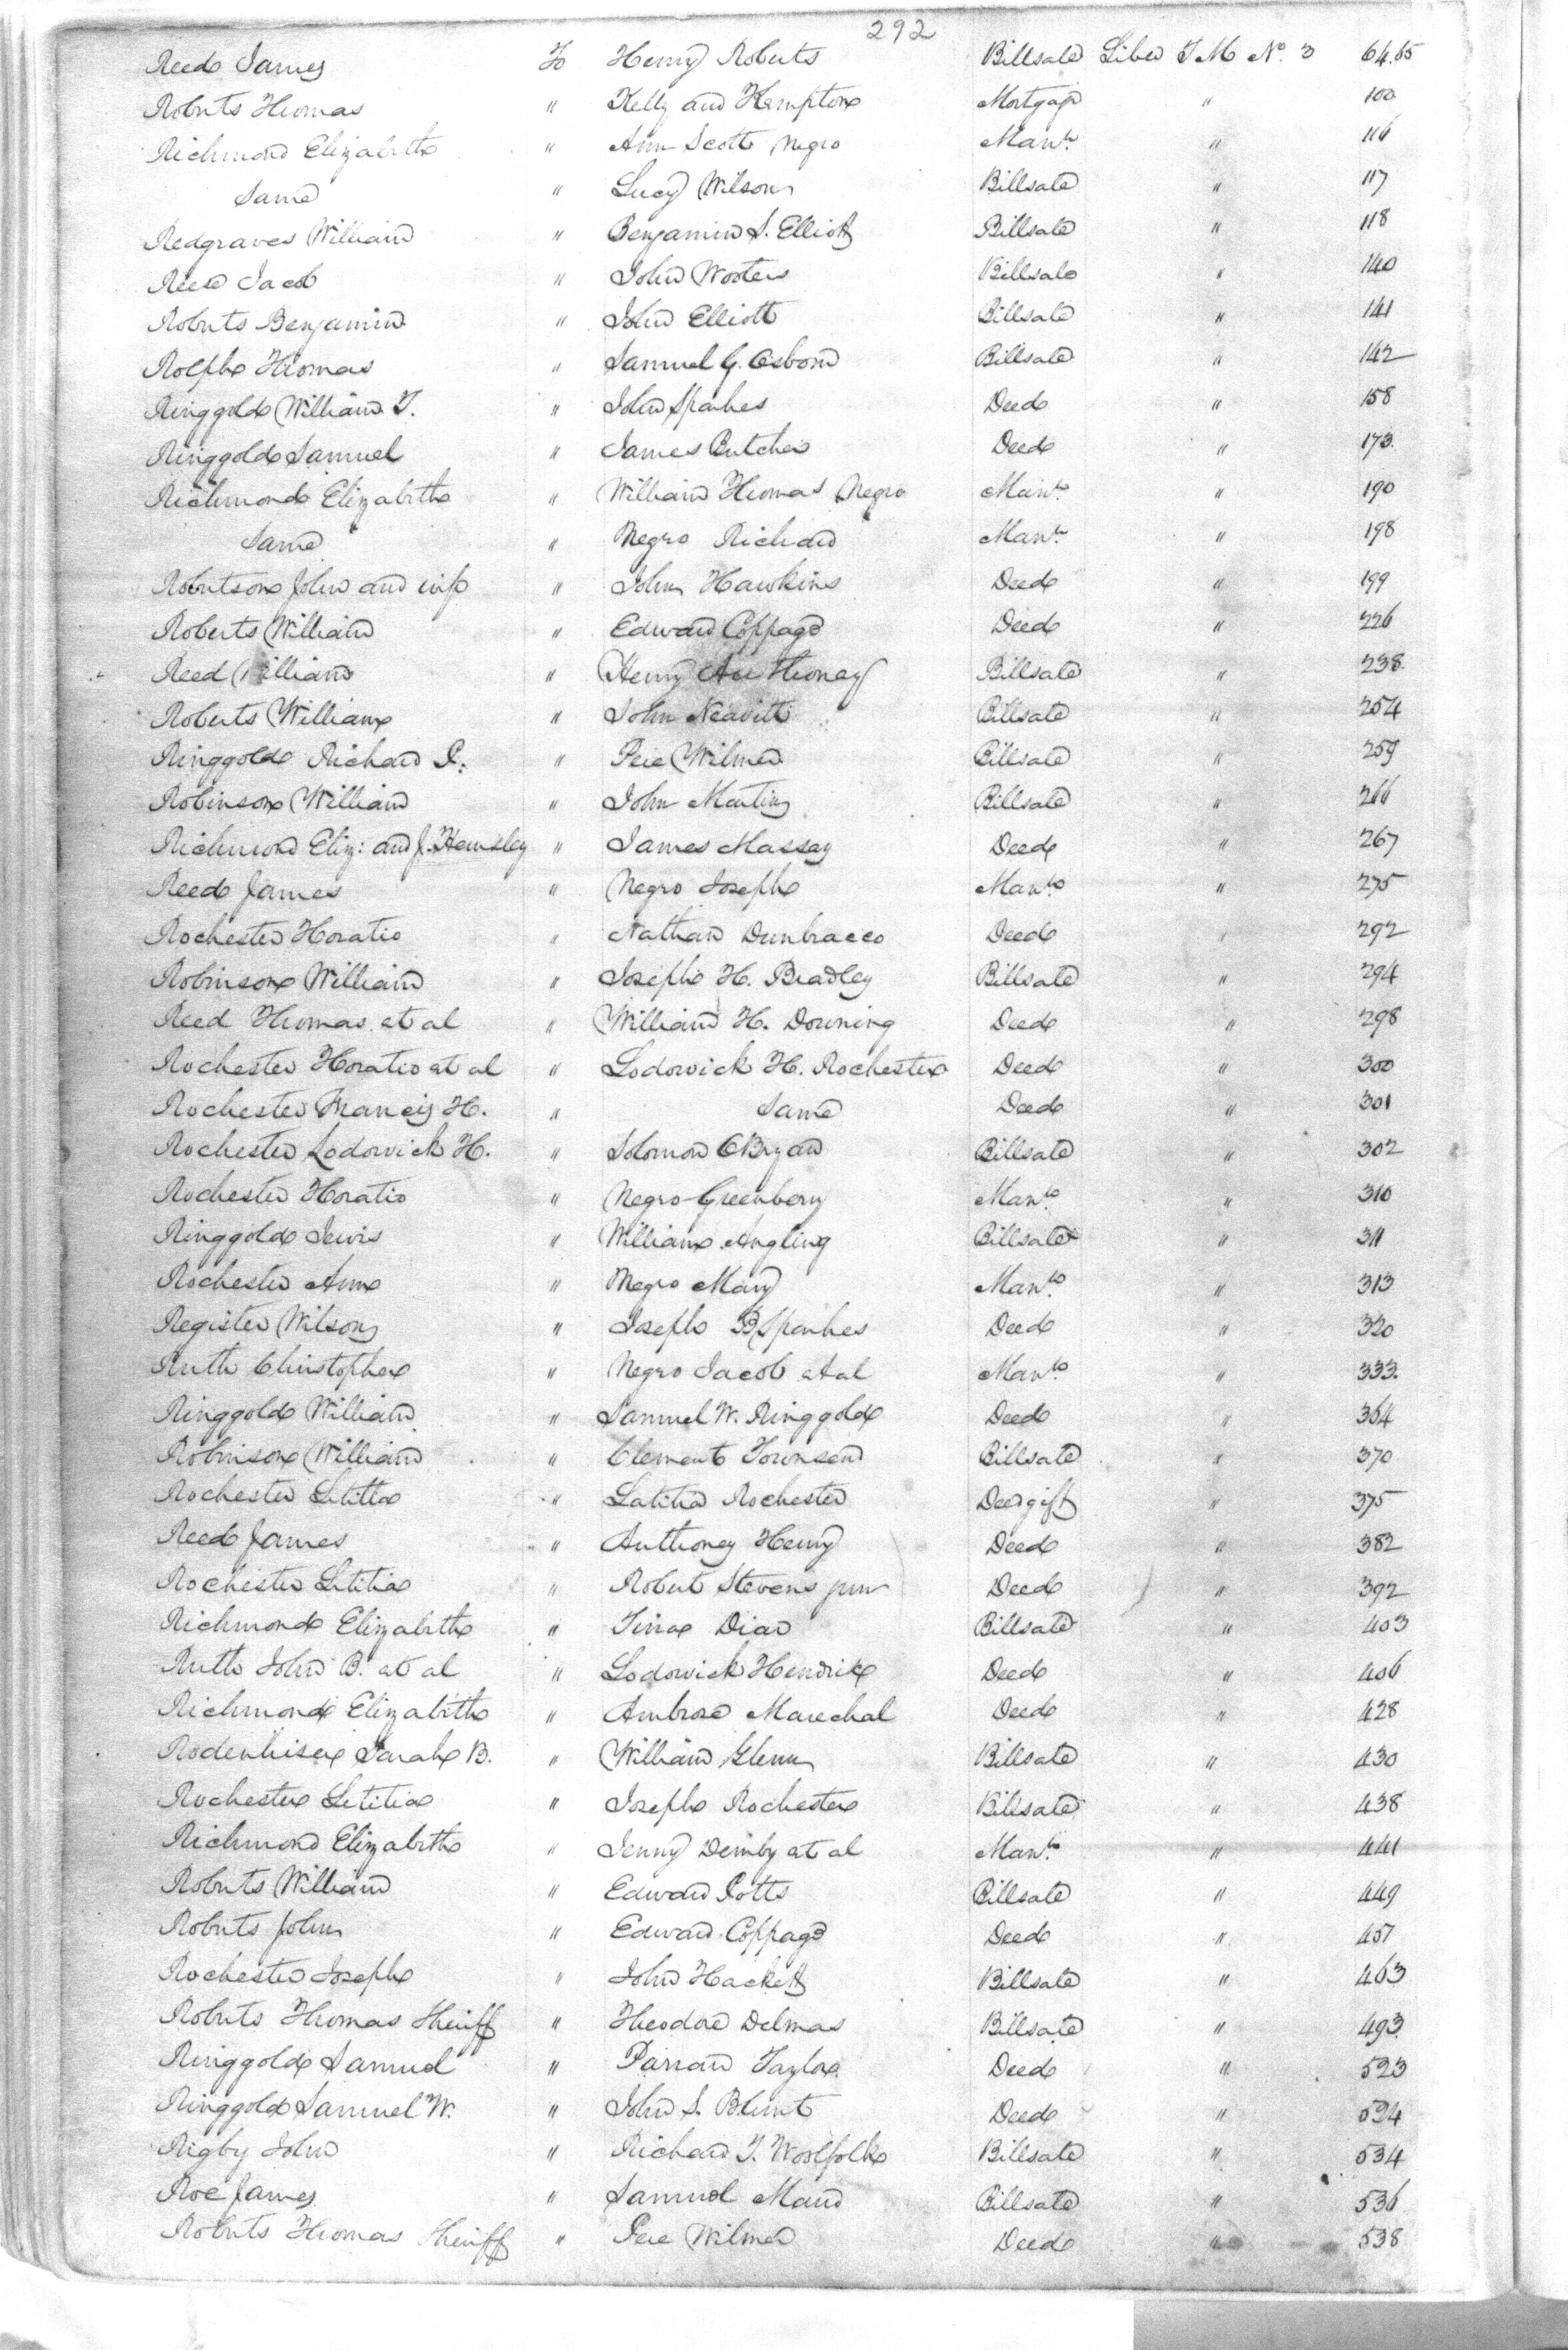 292
Reed James To Henry Roberts Billsale Liber T M No. 3 64.65
Roberts Thomas " Kelly and Kempton Mortgage " 100
Richmond Elizabeth " Ann Scott Negro Mann. " 116
Same " Lucy Wilson Billsale " 117
Redgraves William " Benjamin S. Elliott Billsale " 118
Reese Jacob " John Wooters Billsale " 140
Roberts Benjamin " John Elliott Billsale " 141
Rolph Thomas " Samuel G. Osborn Billsale " 142
Ringgold William T. " John Sparkes Deed " 158
Ringgold Samuel " James Butcher Deed " 173
Richmond Elizabeth " William Thomas Negro Mann. " 190
Same " Negro Richard Mann. " 198
Robertson John and wife " John Hawkins Deed " 199
Roberts William " Edward Coppage Deed " 226
Reed William " Henry Anthoney Billsale " 238
Roberts William " John Neavitt Billsale " 254
Ringgold Richard P. " Pere Wilmer Billsale " 259
Robinson William " John Martin Billsale " 266
Richmond Eliz: and J. Hemsley " James Massey Deed " 267
Reed James " Negro Joseph Manno. " 275
Rochester Horatio " Nathan Dunbracco Deed " 292
Robinson William " Joseph H. Bradley Billsale " 294
Reed Thomas et al " William H. Downing Deed " 298
Rochester Horatio et al " Lodowick H. Rochester Deed " 300
Rochester Francis H. " Same Deed " 301
Rochester Lodowick H. " Solomon OBryan Billsale " 302
Rochester Horatio " Negro Greenberry Manno. " 310
Ringgold Lewis " William Angling Billsale " 311
Rochester Ann " Negro Mary Manno. " 313
Register Wilson " Joseph B Sparkes Deed " 320
Ruth Christopher " Negro Jacob et al Manno. " 333
Ringgold William " Samuel W. Ringgold Deed " 364
Robinson William " Clement Townsend Billsale " 370
Rochester Letitia " Latitia Rochester Deed gift " 375
Reed James " Anthoney Henry Deed " 382
Rochester Letitia " Robert Stevens junr Deed " 392
Richmond Elizabeth " Billsale " 403
Ruth John B. et al " Lodowick Hendrix Deed " 406
Richmond Elizabeth " Ambrose Marechal Deed " 428
Rodenhiser Sarah B. " William Glenn Billsale " 430
Rochester Letitia " Joseph Rochester Billsale " 438
Richmond Elizabeth " Jenny Demby et al Manno. " 441
Roberts William " Edward Potts Billsale " 449
Roberts John " Edward Coppage Deed " 457
Rochester Joseph " John Hackett Billsale " 463
Roberts Thomas Sheriff " Theodore Delmas Billsale " 493
Ringgold Samuel " Parran Taylor Deed " 523
Ringgold Samuel W. " John S. Blunt Deed " 524
Rigby John " Richard T. Woolfolk Billsale " 534
Roe James " Samuel Maud Billsale " 536
Roberts Thomas Sheriff " Pere Wilmer Deed " 538